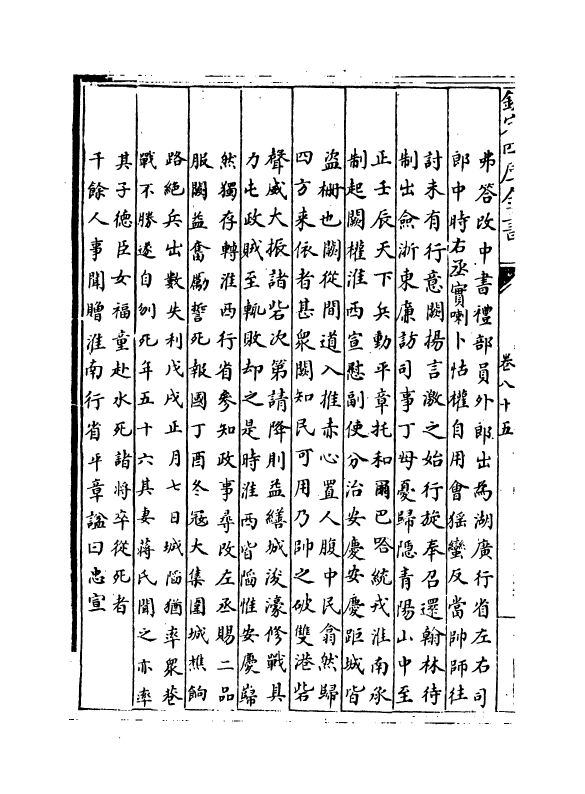 欽定四庫全書
卷八十五
弗答改中書禮部員外郎出為湖廣行省左右司
郎中時右丞實喇卜怙權自用會猺蠻反當帥師往
討未有行意闕揚言激之始行旋奉召還翰林待
制出僉浙東廉訪司事丁母憂歸隱青陽山中至
正壬辰天下兵動平章托和爾巴哈統戎淮南承
制起闕權淮西宣慰副使分治安慶安慶距城皆
盜柵也闕從間道入推赤心置人腹中民翕然歸
四方来依者甚衆闕知民可用乃帥之破雙港砦
聲威大振諸砦次第請降則益繕城浚濠修戰具
力屯政賊至輒敗却之是時淮西皆䧟惟安慶巋
然獨存轉淮西行省參知政事尋改左丞賜二品
服闕益奮勵誓死報國丁酉冬冦大集圍城樵餉
路絕兵出數失利戊戌正月七日城䧟猶率衆巷
戰不勝遂自刎死年五十六其妻蔣氏聞之亦率
其子德臣女福童赴水死諸將卒從死者
千餘人事聞贈淮南行省平章諡曰忠宣